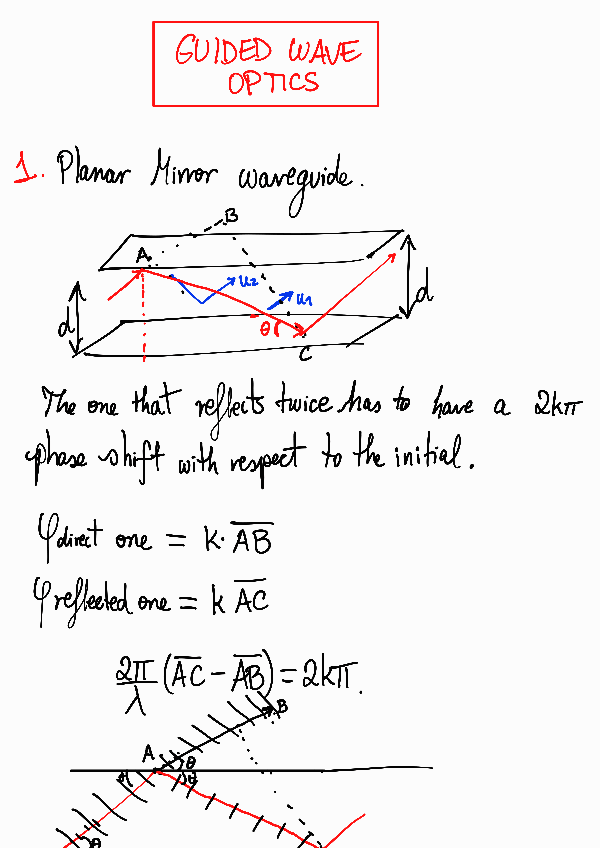 GUIDED WAVE
OPTICS
1. Planar Mirror waveguide.
B
A
u₂
u₁
d
d
θ
C
The one that reflects twice has to have a 2kπ
phase shift with respect to the initial.
φdirect one = k·A̅B̅
φreflected one = k A̅C̅
2π/λ (A̅C̅ - A̅B̅) = 2kπ.
B
A
θ
θ
θ
θ